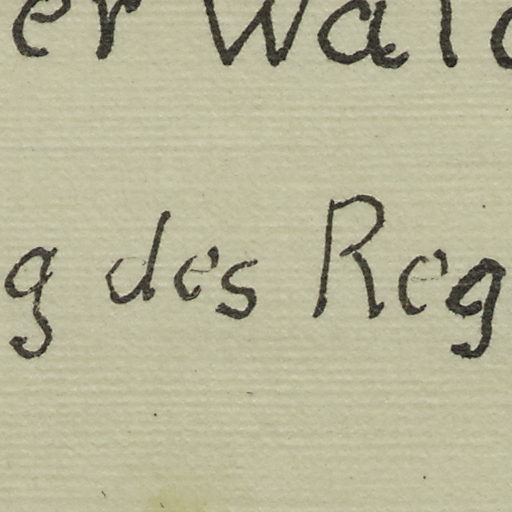 er Wald
g des Reg